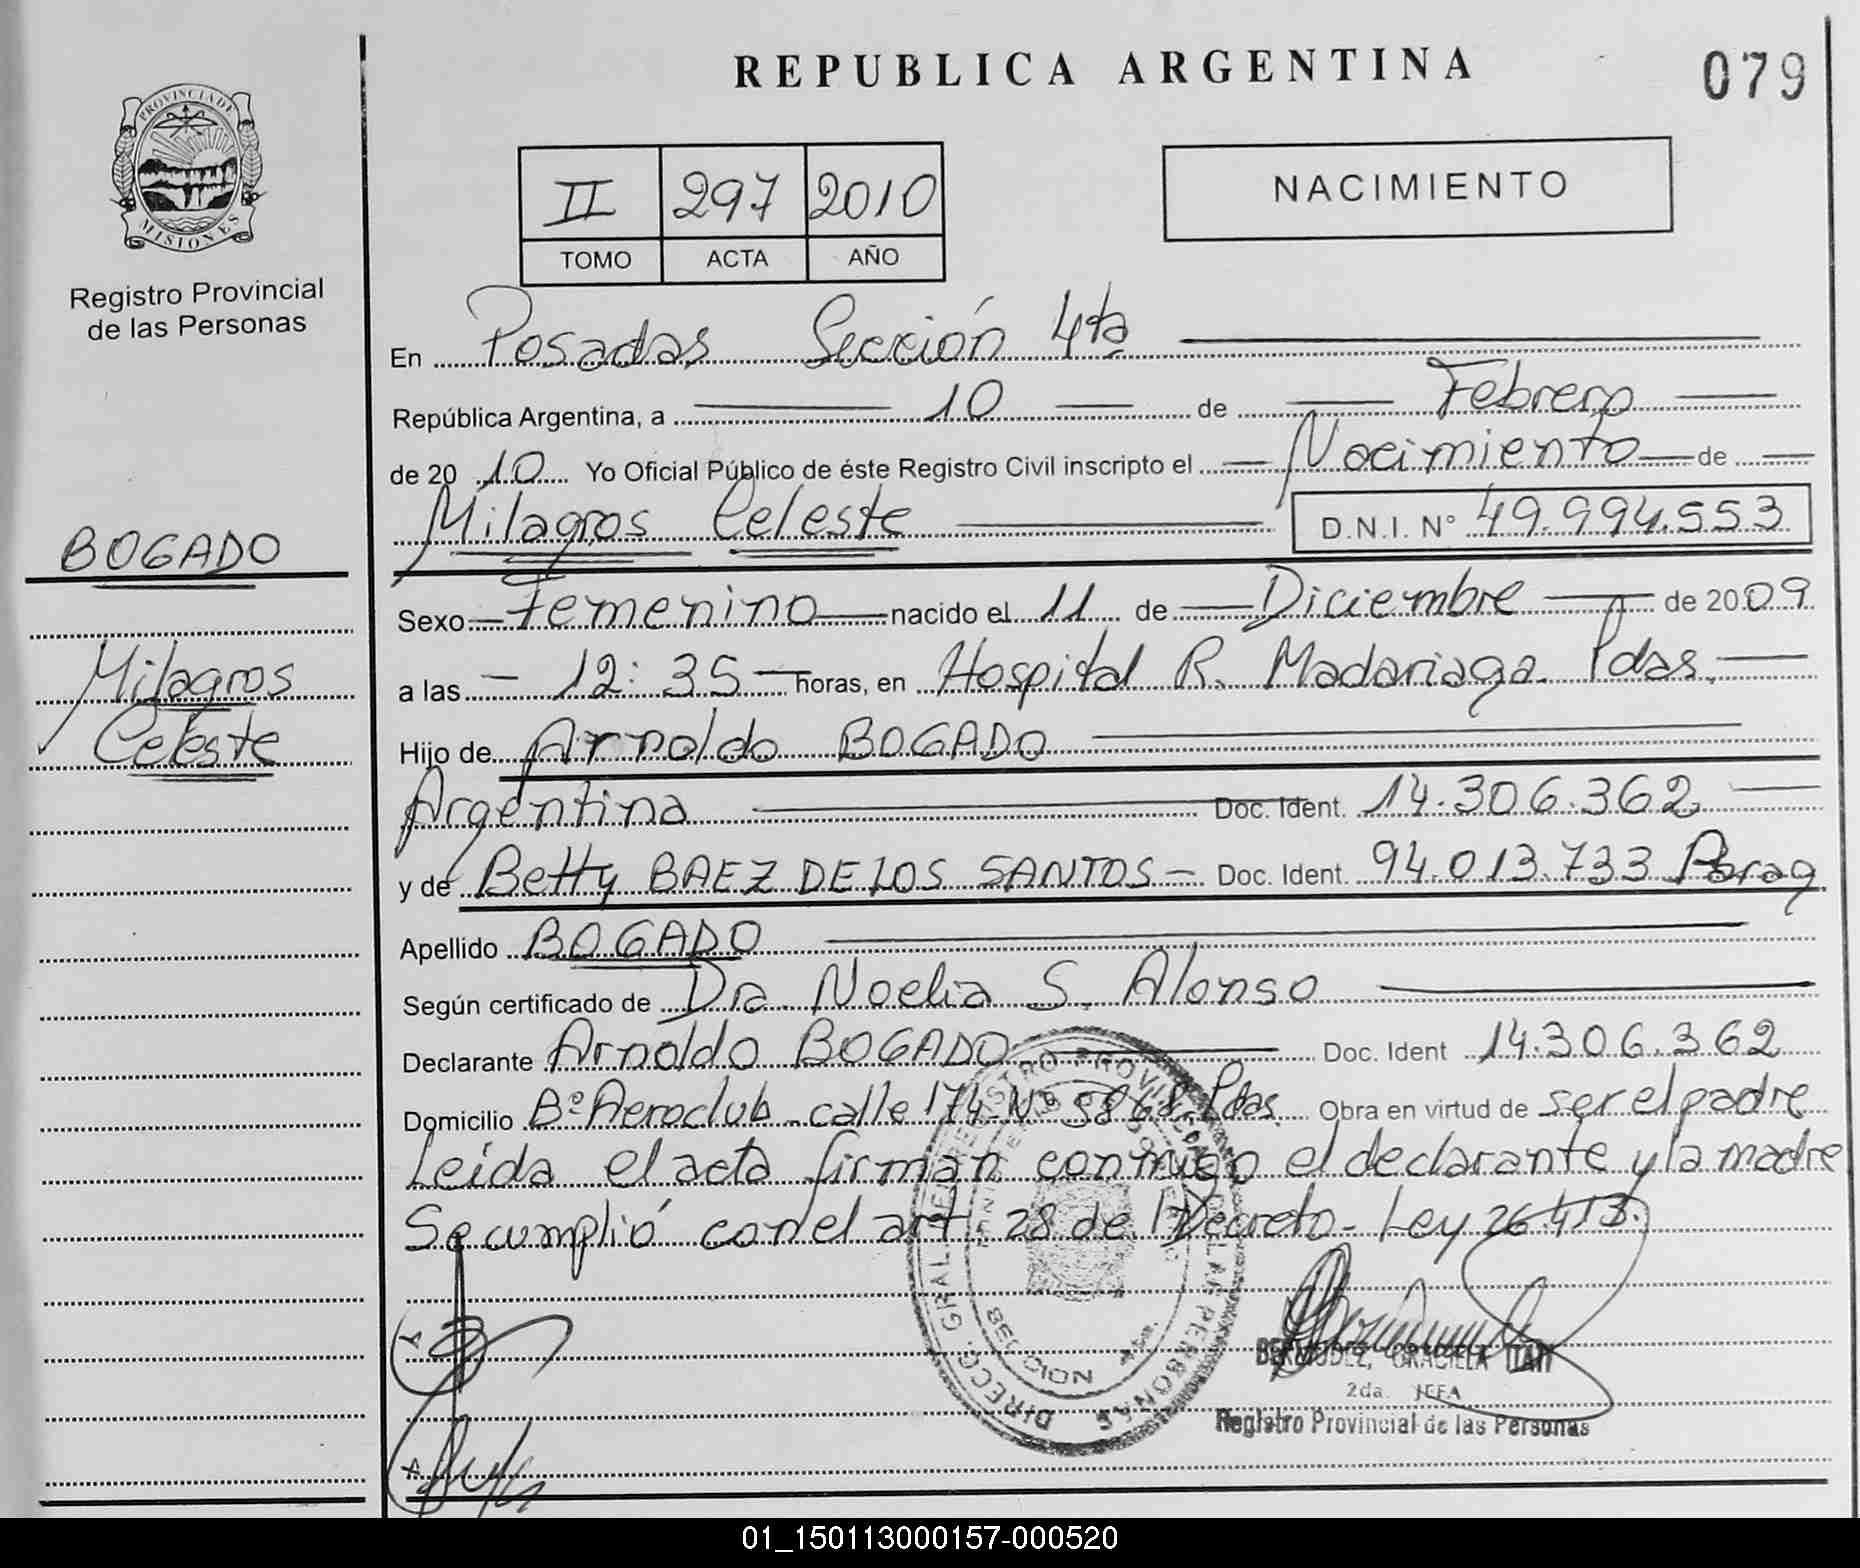 REPUBLICA ARGENTINA
079
PROVINCIA DE
MISIONES
Registro Provincial
de las Personas
II 297 2010
TOMO ACTA AÑO
NACIMIENTO
En Posadas Sección 4ta
República Argentina, a 10 de Febrero
de 20 10 Yo Oficial Público de éste Registro Civil inscripto el Nacimiento de
Milagros Celeste D.N.I. N° 49.994.553
BOGADO
Milagros
Celeste
Sexo Femenino nacido el 11 de Diciembre de 2009
a las 12:35 horas, en Hospital R. Madariaga. Pdas.
Hijo de Arnoldo BOGADO
Argentina Doc. Ident. 14.306.362
y de Betty BAEZ DE LOS SANTOS Doc. Ident. 94.013.733 Parag
Apellido BOGADO
Según certificado de Dra. Noelia S. Alonso
Declarante Arnoldo BOGADO Doc. Ident 14.306.362
Domicilio B° Aeroclub - calle 174 N° 5868 Pdas. Obra en virtud de ser el padre
Leída el acta firman conmigo el declarante y la madre
Se cumplió con el art. 28 del Decreto - Ley 26.413.
BERMUDEZ, GRACIELA ITATI
2da. JEFA
Registro Provincial de las Personas
01_150113000157-000520